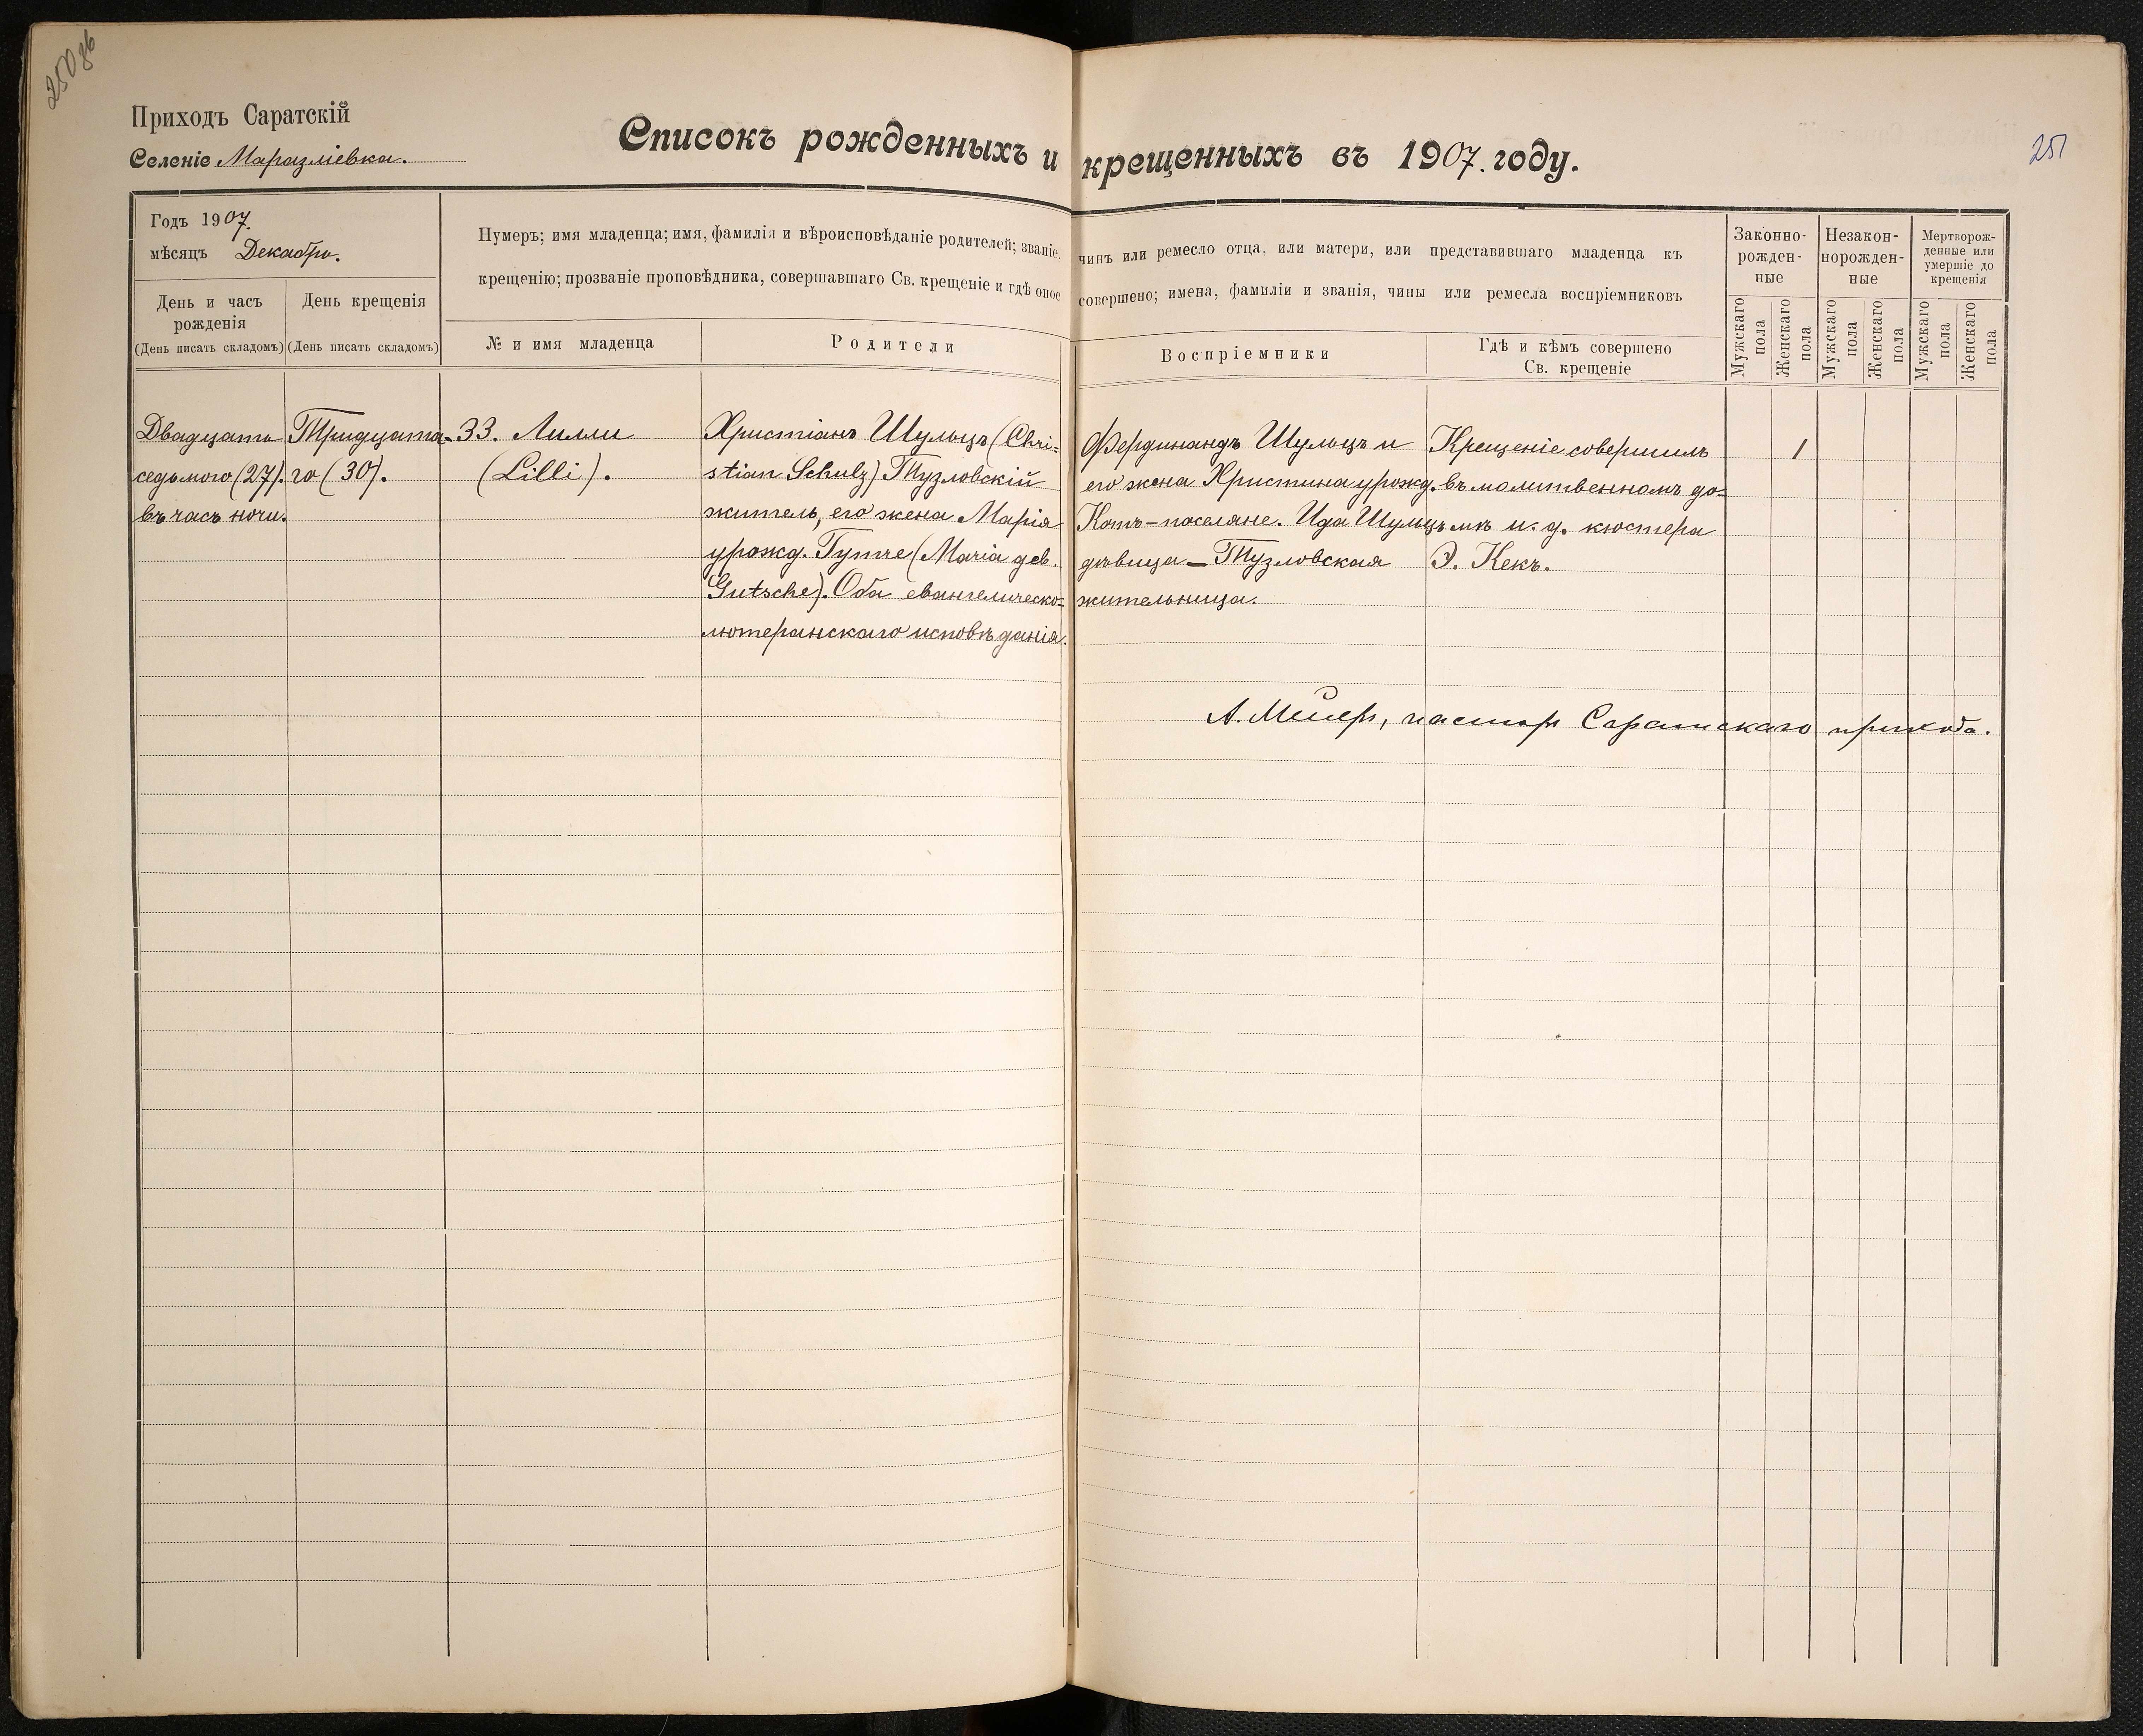 250 об
251
Приходъ Саратскій
Селеніе Маразліевка.
Списокъ рожденныхъ и крещенныхъ въ 1907. году.
Годъ 1907.
мѣсяцъ Декабрь.
Нумеръ; имя младенца; имя, фамилія и вѣроисповѣданіе родителей; званіе, чинъ или ремесло отца, или матери, или представившаго младенца къ
крещенію; прозваніе проповѣдника, совершавшаго Св. крещеніе и гдѣ оное совершено; имена, фамиліи и званія, чины или ремесла воспріемниковъ
День и часъ
рожденія
(День писать складомъ)
День крещенія
(День писать складомъ)
№ и имя младенца
Родители
Воспріемники
Гдѣ и кѣмъ совершено
Св. крещеніе
Законно-
рожден-
ные
Незакон-
норожден-
ные
Мертворож-
денные или
умершіе до
крещенія
Мужскаго
пола
Женскаго
пола
Мужскаго
пола
Женскаго
пола
Мужскаго
пола
Женскаго
пола
Двадцать
седьмого (27).
въ часъ ночи.
Тридцата-
го (30).
33. Лилли
(Lilli).
Христіанъ Шульцъ (Chri=
stian Schulz) Тузловскій
житель, его жена Марія
урожд. Гутче (Maria дев.
Gutsche). Оба евангелическо=
лютеранскаго исповѣданія.
Фердинандъ Шульцъ и
его жена Христина урожд.
Котъ-поселяне. Ида Шульцъ
дѣвица - Тузловская
жительница.
Крещеніе совершилъ
въ молитвенномъ до=
мѣ и. д. кюстера
Э. Кекъ.
1
А. Мейеръ, пасторъ Саратскаго прихода.